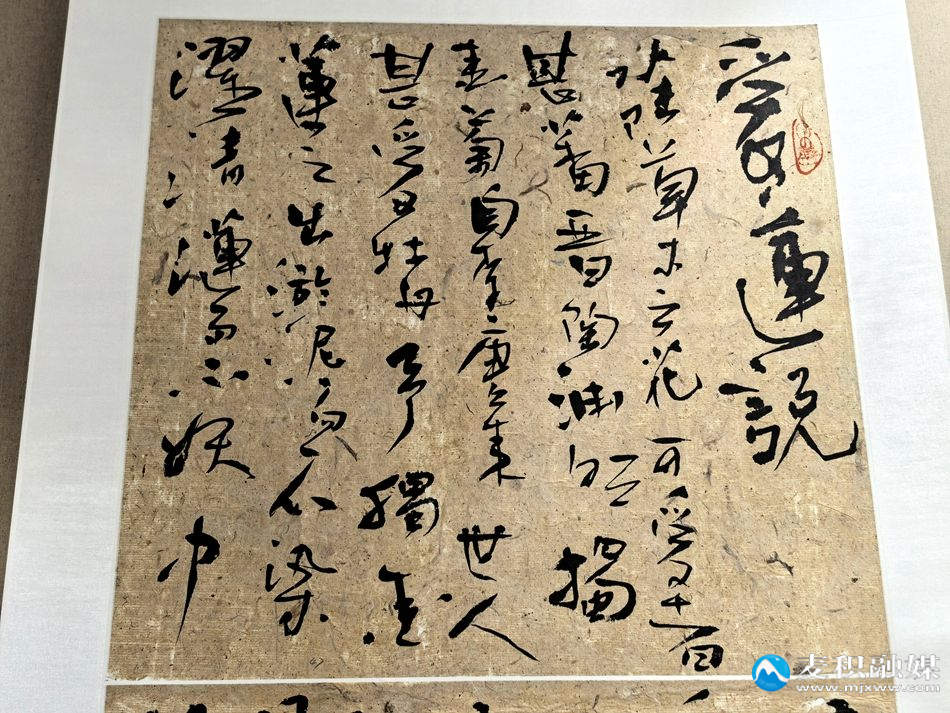 愛蓮說
水陸草木之花可愛者
甚蕃晉陶淵明獨
愛菊自李唐來世人
甚愛牡丹予獨愛
蓮之出淤泥而不染
濯清漣而不妖中
麦积融媒
www.mjxww.com